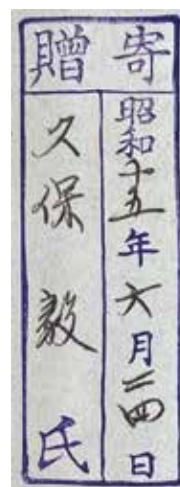 寄贈
昭和十五年六月二四日
久保毅氏